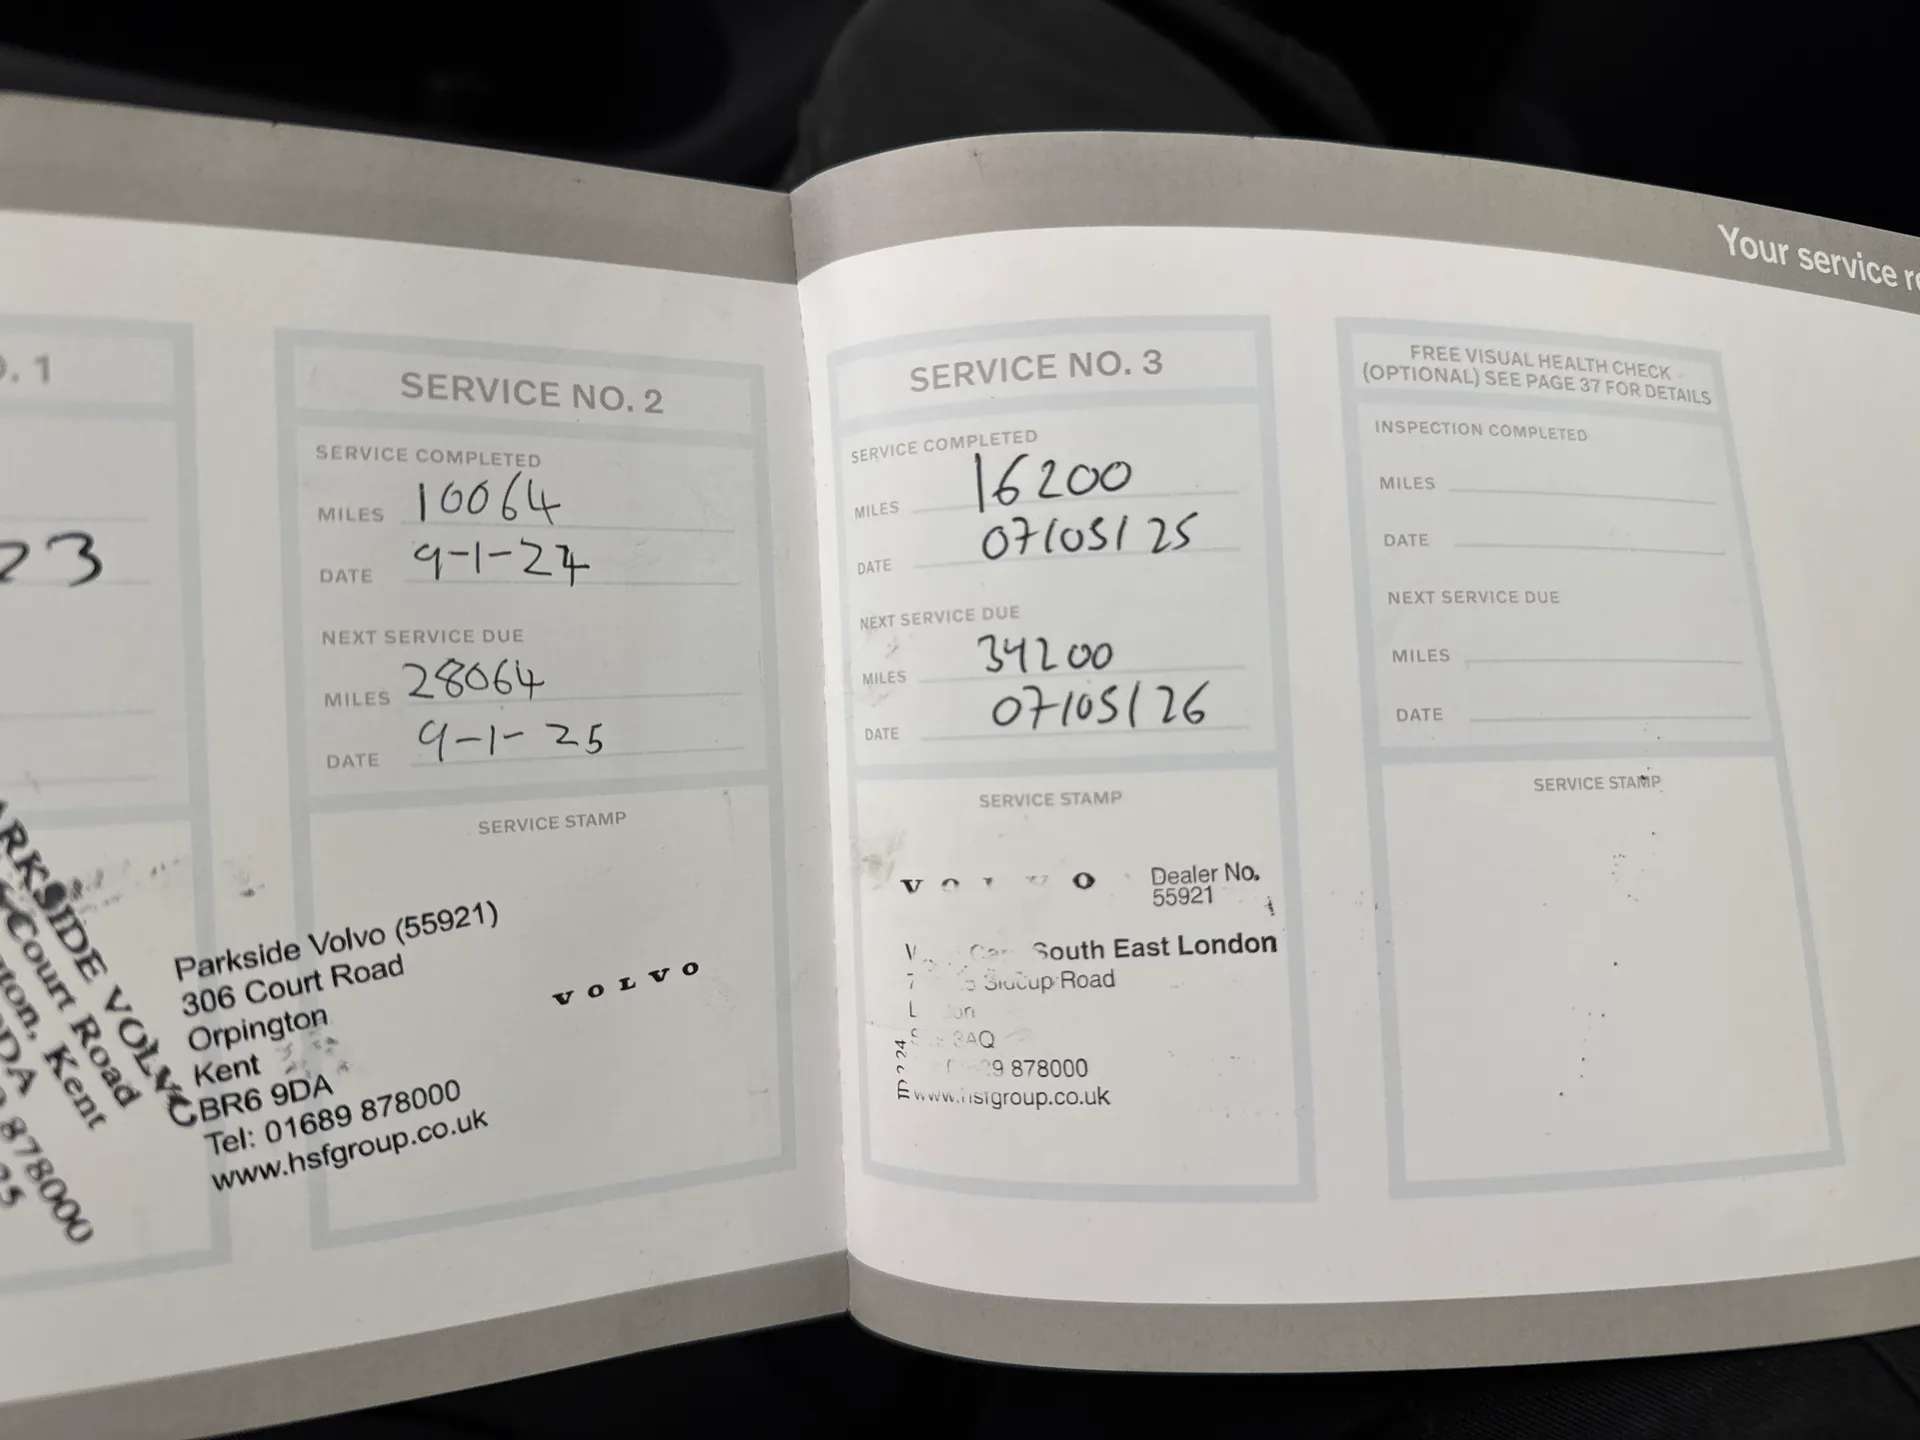 Your service
. 1
23
ARKSIDE VOLVO
Court Road
ton, Kent
9DA
878000
SERVICE NO. 2
SERVICE COMPLETED
MILES 10064
DATE 9-1-24
NEXT SERVICE DUE
MILES 28064
DATE 9-1-25
SERVICE STAMP
Parkside Volvo (55921)
306 Court Road
Orpington
Kent
BR6 9DA
Tel: 01689 878000
www.hsfgroup.co.uk
VOLVO
SERVICE NO. 3
SERVICE COMPLETED
MILES 16200
DATE 07/05/25
NEXT SERVICE DUE
MILES 34200
DATE 07/05/26
SERVICE STAMP
VOLVO Dealer No.
55921
South East London
Sidcup Road
878000
www.hsfgroup.co.uk
FREE VISUAL HEALTH CHECK
(OPTIONAL) SEE PAGE 37 FOR DETAILS
INSPECTION COMPLETED
MILES
DATE
NEXT SERVICE DUE
MILES
DATE
SERVICE STAMP